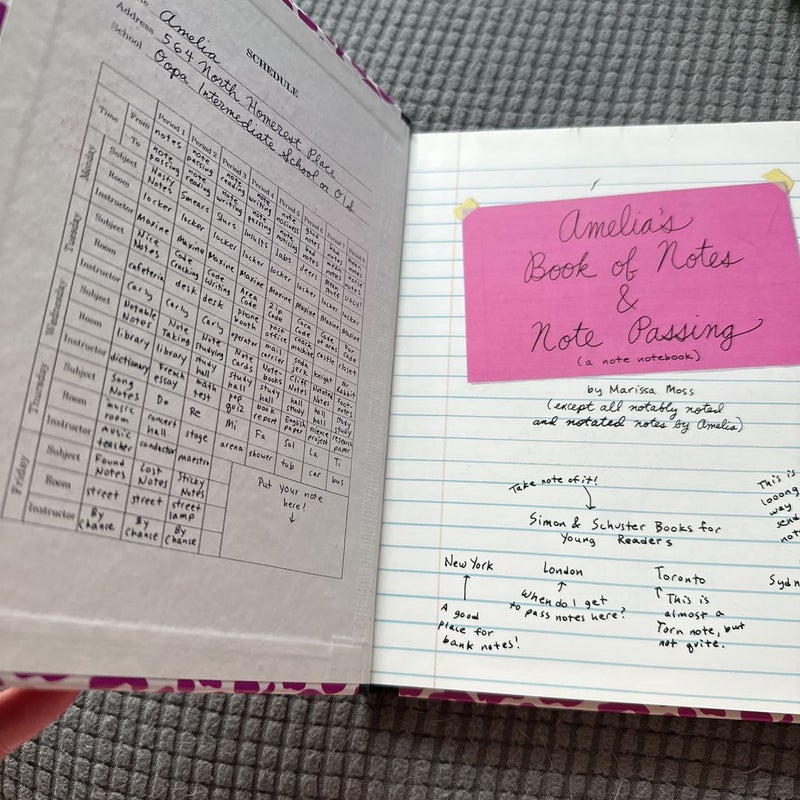 Amelia
Address 564 North Homerest Place
School Oopa Intermediate School or O.I.S.
SCHEDULE
Time From Period 1 Period 2 Period 3 Period 4 Period 5 Period 6 Period 7 Period 8
To notes
Monday
Subject note passing note passing note reading note writing
Room Nasty Notes Smears Slurs Insults Jabs Jeers
Instructor locker locker locker locker locker locker locker locker
Tuesday
Subject Maxine Maxine Maxine Maxine Maxine Maxine Maxine Maxine
Nice Notes Code Cracking Code Writing Area Code Zip Code
Room cafeteria desk desk phone booth post office castle closet
Instructor Carly Carly Carly operator mail carrier knight
Wednesday
Subject Notable Notes Note Taking Note Studying Note Cards Note Books Cliff Notes Notated Notes Foot-notes
Room library library study hall study hall study hall study hall study hall study hall
Instructor dictionary French essay math test pop quiz book report English paper science project research paper
Thursday
Subject Song Notes Do Re Mi Fa Sol La Ti
Room music room concert hall stage arena shower tub car bus
Instructor music teacher conductor maestro
Friday
Subject Found Notes Lost Notes Sticky Notes
Room street street street lamp
Instructor By Chance By Chance By Chance
Put your note
here!
Amelia's
Book of Notes
&
Note Passing
(a note notebook)
by Marissa Moss
(except all notably noted
and notated notes by Amelia)
Take note of it!
This is
looong
way
send
not
Simon & Schuster Books for
Young Readers
New York London Toronto Sydn
A good
place for
bank notes!
When do I get
to pass notes here?
This is
almost a
Torn note, but
not quite.